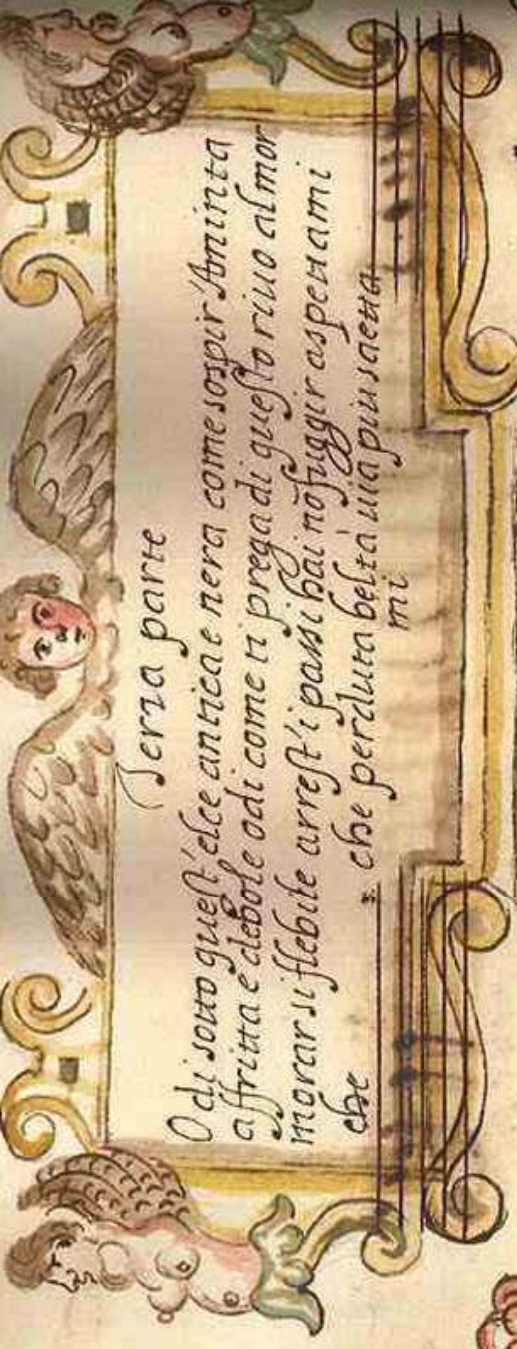 Terza parte
Odi sotto quest'elce antica e nera come sospir'Aminta
affritta e debole odi come ti prega di questo rivo al mor
morar si flebile arrest'i passi hai nō fuggir aspettami
che che perduta beltà uia piu saetta
mi